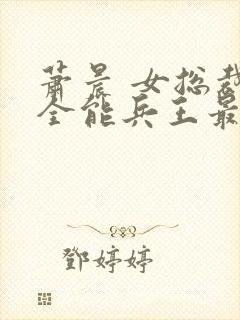 萧晨 女总裁
全能兵王最
鄧婷婷